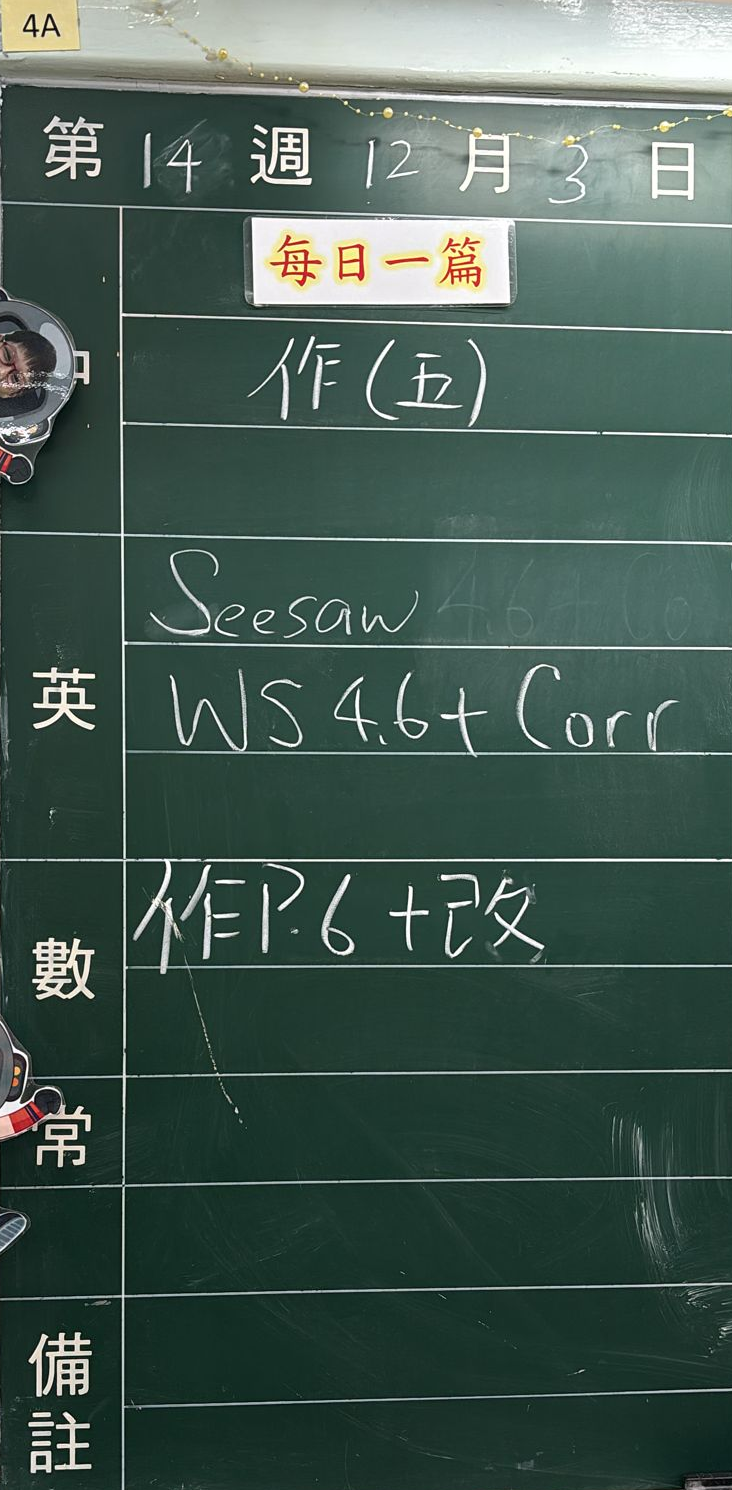 4A
第 14 週 12 月 3 日
每日一篇
中
作(五)
英
Seesaw
WS 4.6 + Corr
數
作P.6 + 改
常
備註